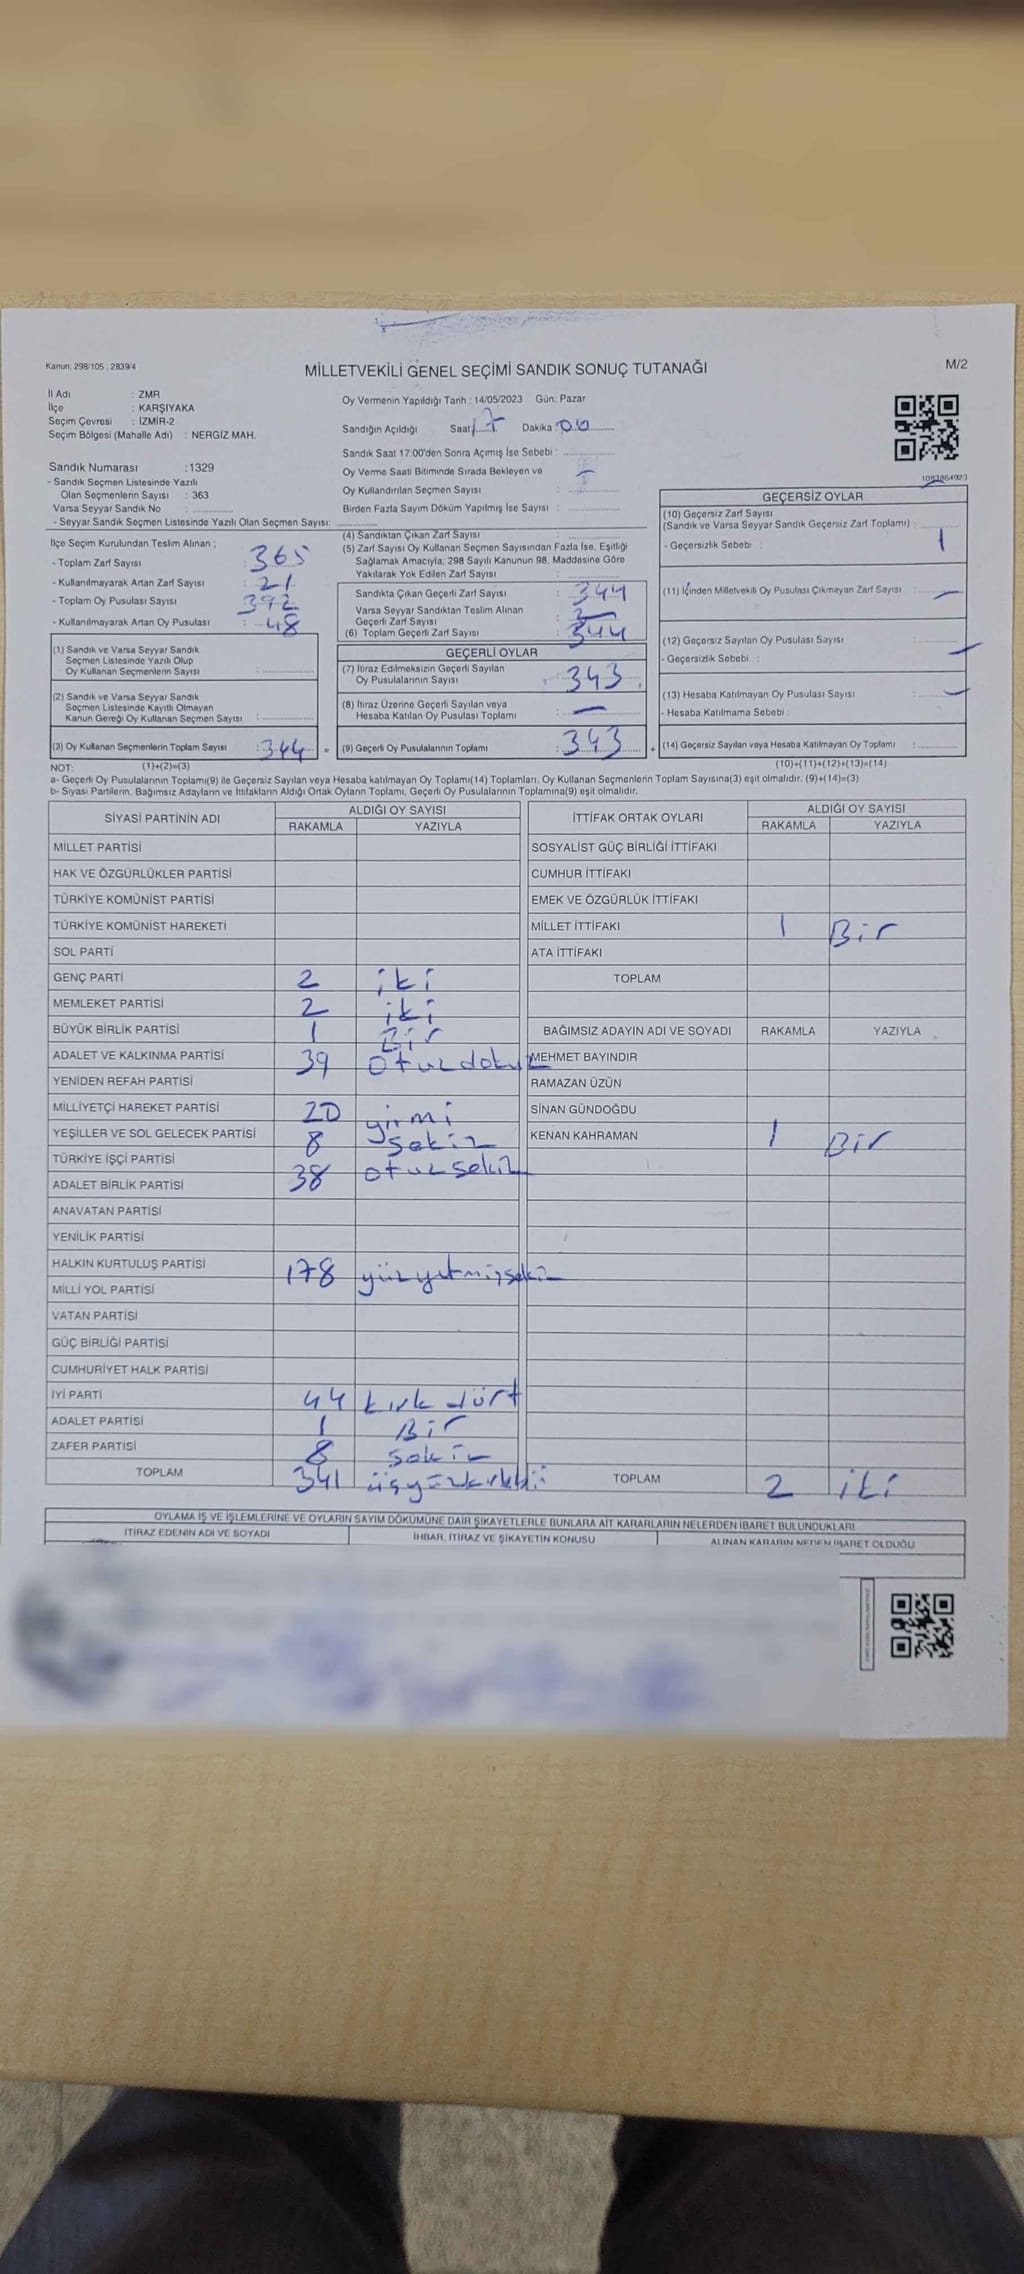 Kanun: 298/105 , 2839/4
MİLLETVEKİLİ GENEL SEÇİMİ SANDIK SONUÇ TUTANAĞI
M/2
İl Adı : ZMR
İlçe : KARŞIYAKA
Seçim Çevresi : İZMİR-2
Seçim Bölgesi (Mahalle Adı) : NERGİZ MAH.
Oy Vermenin Yapıldığı Tarih : 14/05/2023 Gün: Pazar
Sandığın Açıldığı Saat 17 Dakika : 00
Sandık Saat 17.00'den Sonra Açımış İse Sebebi :
Oy Verme Saati Bitiminde Sırada Bekleyen ve
Oy Kullandırılan Seçmen Sayısı : —
Birden Fazla Sayım Döküm Yapılmış İse Sayısı :
Sandık Numarası : 1329
- Sandık Seçmen Listesinde Yazılı
Olan Seçmenlerin Sayısı : 363
Varsa Seyyar Sandık No :
- Seyyar Sandık Seçmen Listesinde Yazılı Olan Seçmen Sayısı:
İlçe Seçim Kurulundan Teslim Alınan ;
- Toplam Zarf Sayısı : 365
- Kullanılmayarak Artan Zarf Sayısı : 21
- Toplam Oy Pusulası Sayısı : 392
- Kullanılmayarak Artan Oy Pusulası : 48
(1) Sandık ve Varsa Seyyar Sandık
Seçmen Listesinde Yazılı Olup
Oy Kullanan Seçmenlerin Sayısı :
(2) Sandık ve Varsa Seyyar Sandık
Seçmen Listesinde Kayıtlı Olmayan
Kanun Gereği Oy Kullanan Seçmen Sayısı :
(3) Oy Kullanan Seçmenlerin Toplam Sayısı : 344 =
(4) Sandıktan Çıkan Zarf Sayısı :
(5) Zarf Sayısı Oy Kullanan Seçmen Sayısından Fazla İse, Eşitliği
Sağlamak Amacıyla; 298 Sayılı Kanunun 98. Maddesine Göre
Yakılarak Yok Edilen Zarf Sayısı :
Sandıkta Çıkan Geçerli Zarf Sayısı : 344
Varsa Seyyar Sandıktan Teslim Alınan
Geçerli Zarf Sayısı : —
(6) Toplam Geçerli Zarf Sayısı : 344
GEÇERLİ OYLAR
(7) İtiraz Edilmeksizin Geçerli Sayılan
Oy Pusulalarının Sayısı : 343
(8) İtiraz Üzerine Geçerli Sayılan veya
Hesaba Katılan Oy Pusulası Toplamı : —
(9) Geçerli Oy Pusulalarının Toplamı : 343 +
GEÇERSİZ OYLAR
(10) Geçersiz Zarf Sayısı
(Sandık ve Varsa Seyyar Sandık Geçersiz Zarf Toplamı) :
- Geçersizlik Sebebi : 1
(11) İçinden Milletvekili Oy Pusulası Çıkmayan Zarf Sayısı : —
(12) Geçersiz Sayılan Oy Pusulası Sayısı : —
- Geçersizlik Sebebi :
(13) Hesaba Katılmayan Oy Pusulası Sayısı : —
- Hesaba Katılmama Sebebi :
(14) Geçersiz Sayılan veya Hesaba Katılmayan Oy Toplamı :
NOT: (1)+(2)=(3)
(10)+(11)+(12)+(13)=(14)
a- Geçerli Oy Pusulalarının Toplamı(9) ile Geçersiz Sayılan veya Hesaba katılmayan Oy Toplamı(14) Toplamları, Oy Kullanan Seçmenlerin Toplam Sayısına(3) eşit olmalıdır. (9)+(14)=(3)
b- Siyasi Partilerin, Bağımsız Adayların ve İttifakların Aldığı Ortak Oyların Toplamı, Geçerli Oy Pusulalarının Toplamına(9) eşit olmalıdır.
SİYASİ PARTİNİN ADI ALDIĞI OY SAYISI
RAKAMLA YAZIYLA
MİLLET PARTİSİ
HAK VE ÖZGÜRLÜKLER PARTİSİ
TÜRKİYE KOMÜNİST PARTİSİ
TÜRKİYE KOMÜNİST HAREKETİ
SOL PARTİ
GENÇ PARTİ 2 iki
MEMLEKET PARTİSİ 2 iki
BÜYÜK BİRLİK PARTİSİ 1 Bir
ADALET VE KALKINMA PARTİSİ 39 otuzdokuz
YENİDEN REFAH PARTİSİ
MİLLİYETÇİ HAREKET PARTİSİ 20 yirmi
YEŞİLLER VE SOL GELECEK PARTİSİ 8 sekiz
TÜRKİYE İŞÇİ PARTİSİ 38 otuzsekiz
ADALET BİRLİK PARTİSİ
ANAVATAN PARTİSİ
YENİLİK PARTİSİ
HALKIN KURTULUŞ PARTİSİ 178 yüzyetmişsekiz
MİLLİ YOL PARTİSİ
VATAN PARTİSİ
GÜÇ BİRLİĞİ PARTİSİ
CUMHURİYET HALK PARTİSİ
İYİ PARTİ 44 kırk dört
ADALET PARTİSİ 1 Bir
ZAFER PARTİSİ 8 sekiz
TOPLAM 341 üçyüzkırkbir
İTTİFAK ORTAK OYLARI ALDIĞI OY SAYISI
RAKAMLA YAZIYLA
SOSYALİST GÜÇ BİRLİĞİ İTTİFAKI
CUMHUR İTTİFAKI
EMEK VE ÖZGÜRLÜK İTTİFAKI
MİLLET İTTİFAKI 1 Bir
ATA İTTİFAKI
TOPLAM
BAĞIMSIZ ADAYIN ADI VE SOYADI RAKAMLA YAZIYLA
MEHMET BAYINDIR
RAMAZAN ÜZÜN
SİNAN GÜNDOĞDU
KENAN KAHRAMAN 1 Bir
TOPLAM 2 iki
OYLAMA İŞ VE İŞLEMLERİNE VE OYLARIN SAYIM DÖKÜMÜNE DAİR ŞİKAYETLERLE BUNLARA AİT KARARLARIN NELERDEN İBARET BULUNDUKLARI
İTİRAZ EDENİN ADI VE SOYADI İHBAR, İTİRAZ VE ŞİKAYETİN KONUSU ALINAN KARARIN NEDEN İBARET OLDUĞU